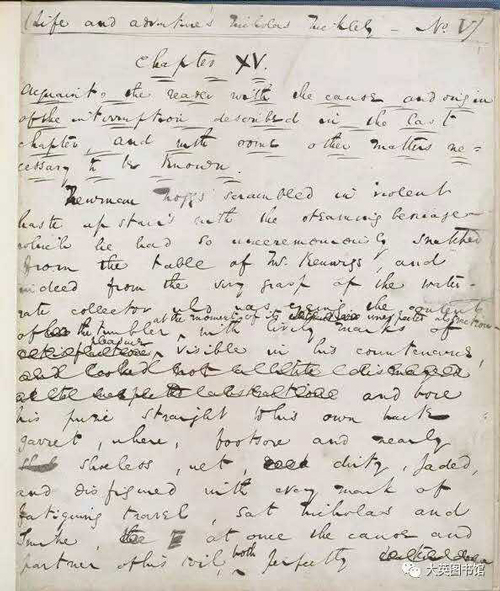 (Life and adventures Nicholas Nickleby – No. V)
Chapter XV.
Acquaints the reader with the cause and origin
of the interruption described in the last
chapter, and with some other matters ne-
cessary to be known.
Newman Noggs scrambled in violent
haste up stairs with the steaming beverage
which he had so unceremoniously snatched
from the table of Mr. Kenwigs, and
indeed from the very grasp of the water-
rate collector who was eyeing the contents
of the tumbler, at the moment of its unexpected abstraction
with lively marks of
pleasure visible in his countenance,
and bore
his prize straight to his own back
garret, where, footsore and nearly
shoeless, wet, dirty, jaded,
and disfigured with every mark of
fatiguing travel, sat Nicholas and
Smike, at once the cause and
partner of his toil, both perfectly
大英图书馆